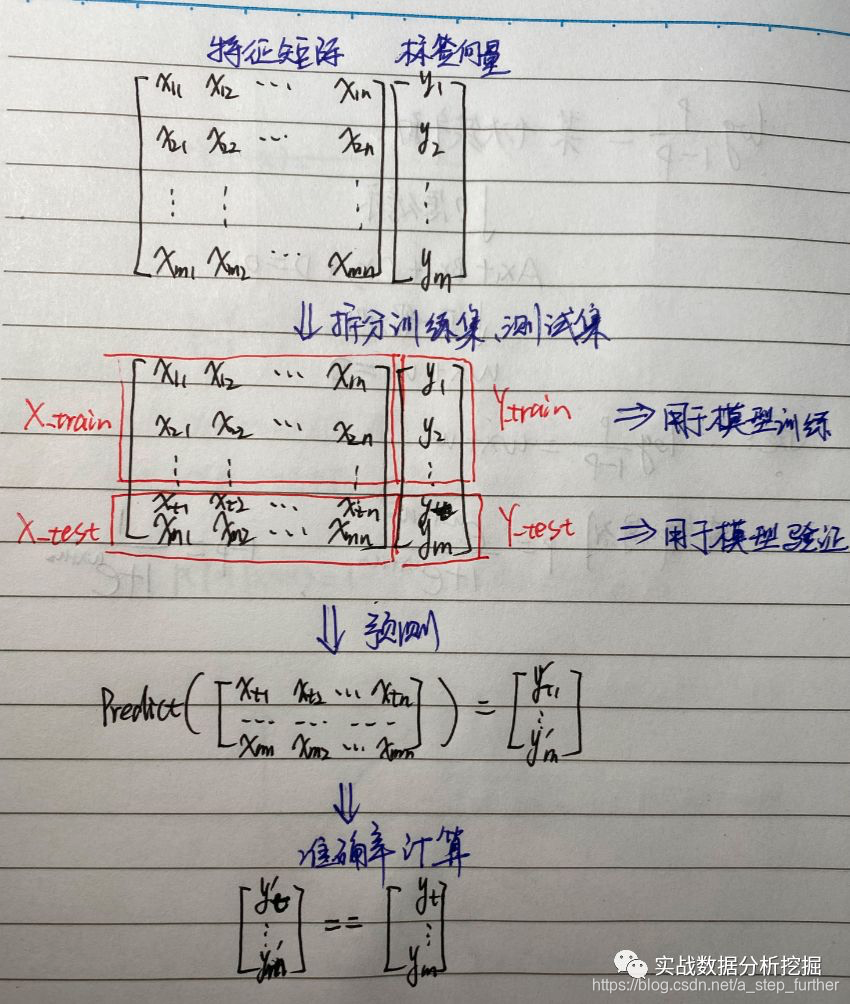 特征矩阵 标签向量
x11 x12 ... x1n y1
x21 x22 ... x2n y2
⋮ ⋮ ⋮ ⋮
xm1 xm2 ... xmn ym
⇓ 拆分训练集、测试集
x11 x12 ... x1n y1
X_train x21 x22 ... x2n y2 Y_train ⇒ 用于模型训练
⋮ ⋮ ⋮ ⋮
xt1 xt2 ... xtn
X_test xm1 xm2 ... xmn ym Y_test ⇒ 用于模型验证
⇓ 预测
Predict( [ xt1 xt2 ... xtn
... ... ...
xm xm2 ... xmn ] ) = [ y't1 ⋮ y'm ]
⇓
准确率计算
[ y't ⋮ y'm ] == [ yt ⋮ ym ]
实战数据分析挖掘
https://blog.csdn.net/a_step_further